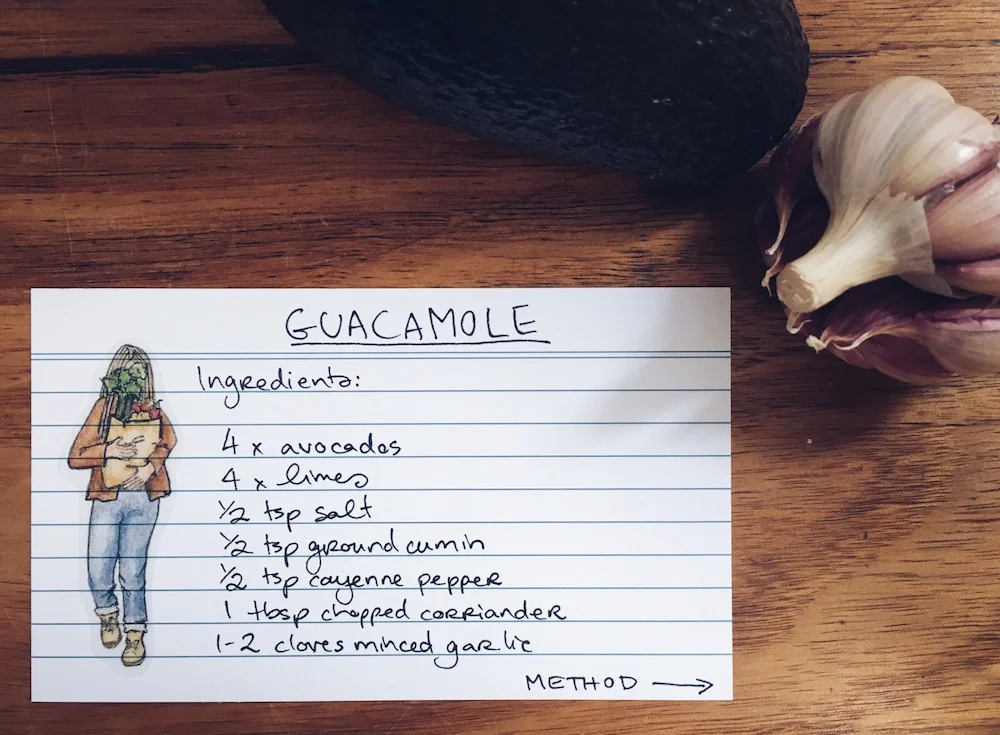 GUACAMOLE
Ingredients:
4 x avocados
4 x limes
1/2 tsp salt
1/2 tsp ground cumin
1/2 tsp cayenne pepper
1 tbsp chopped corriander
1-2 cloves minced garlic
METHOD →